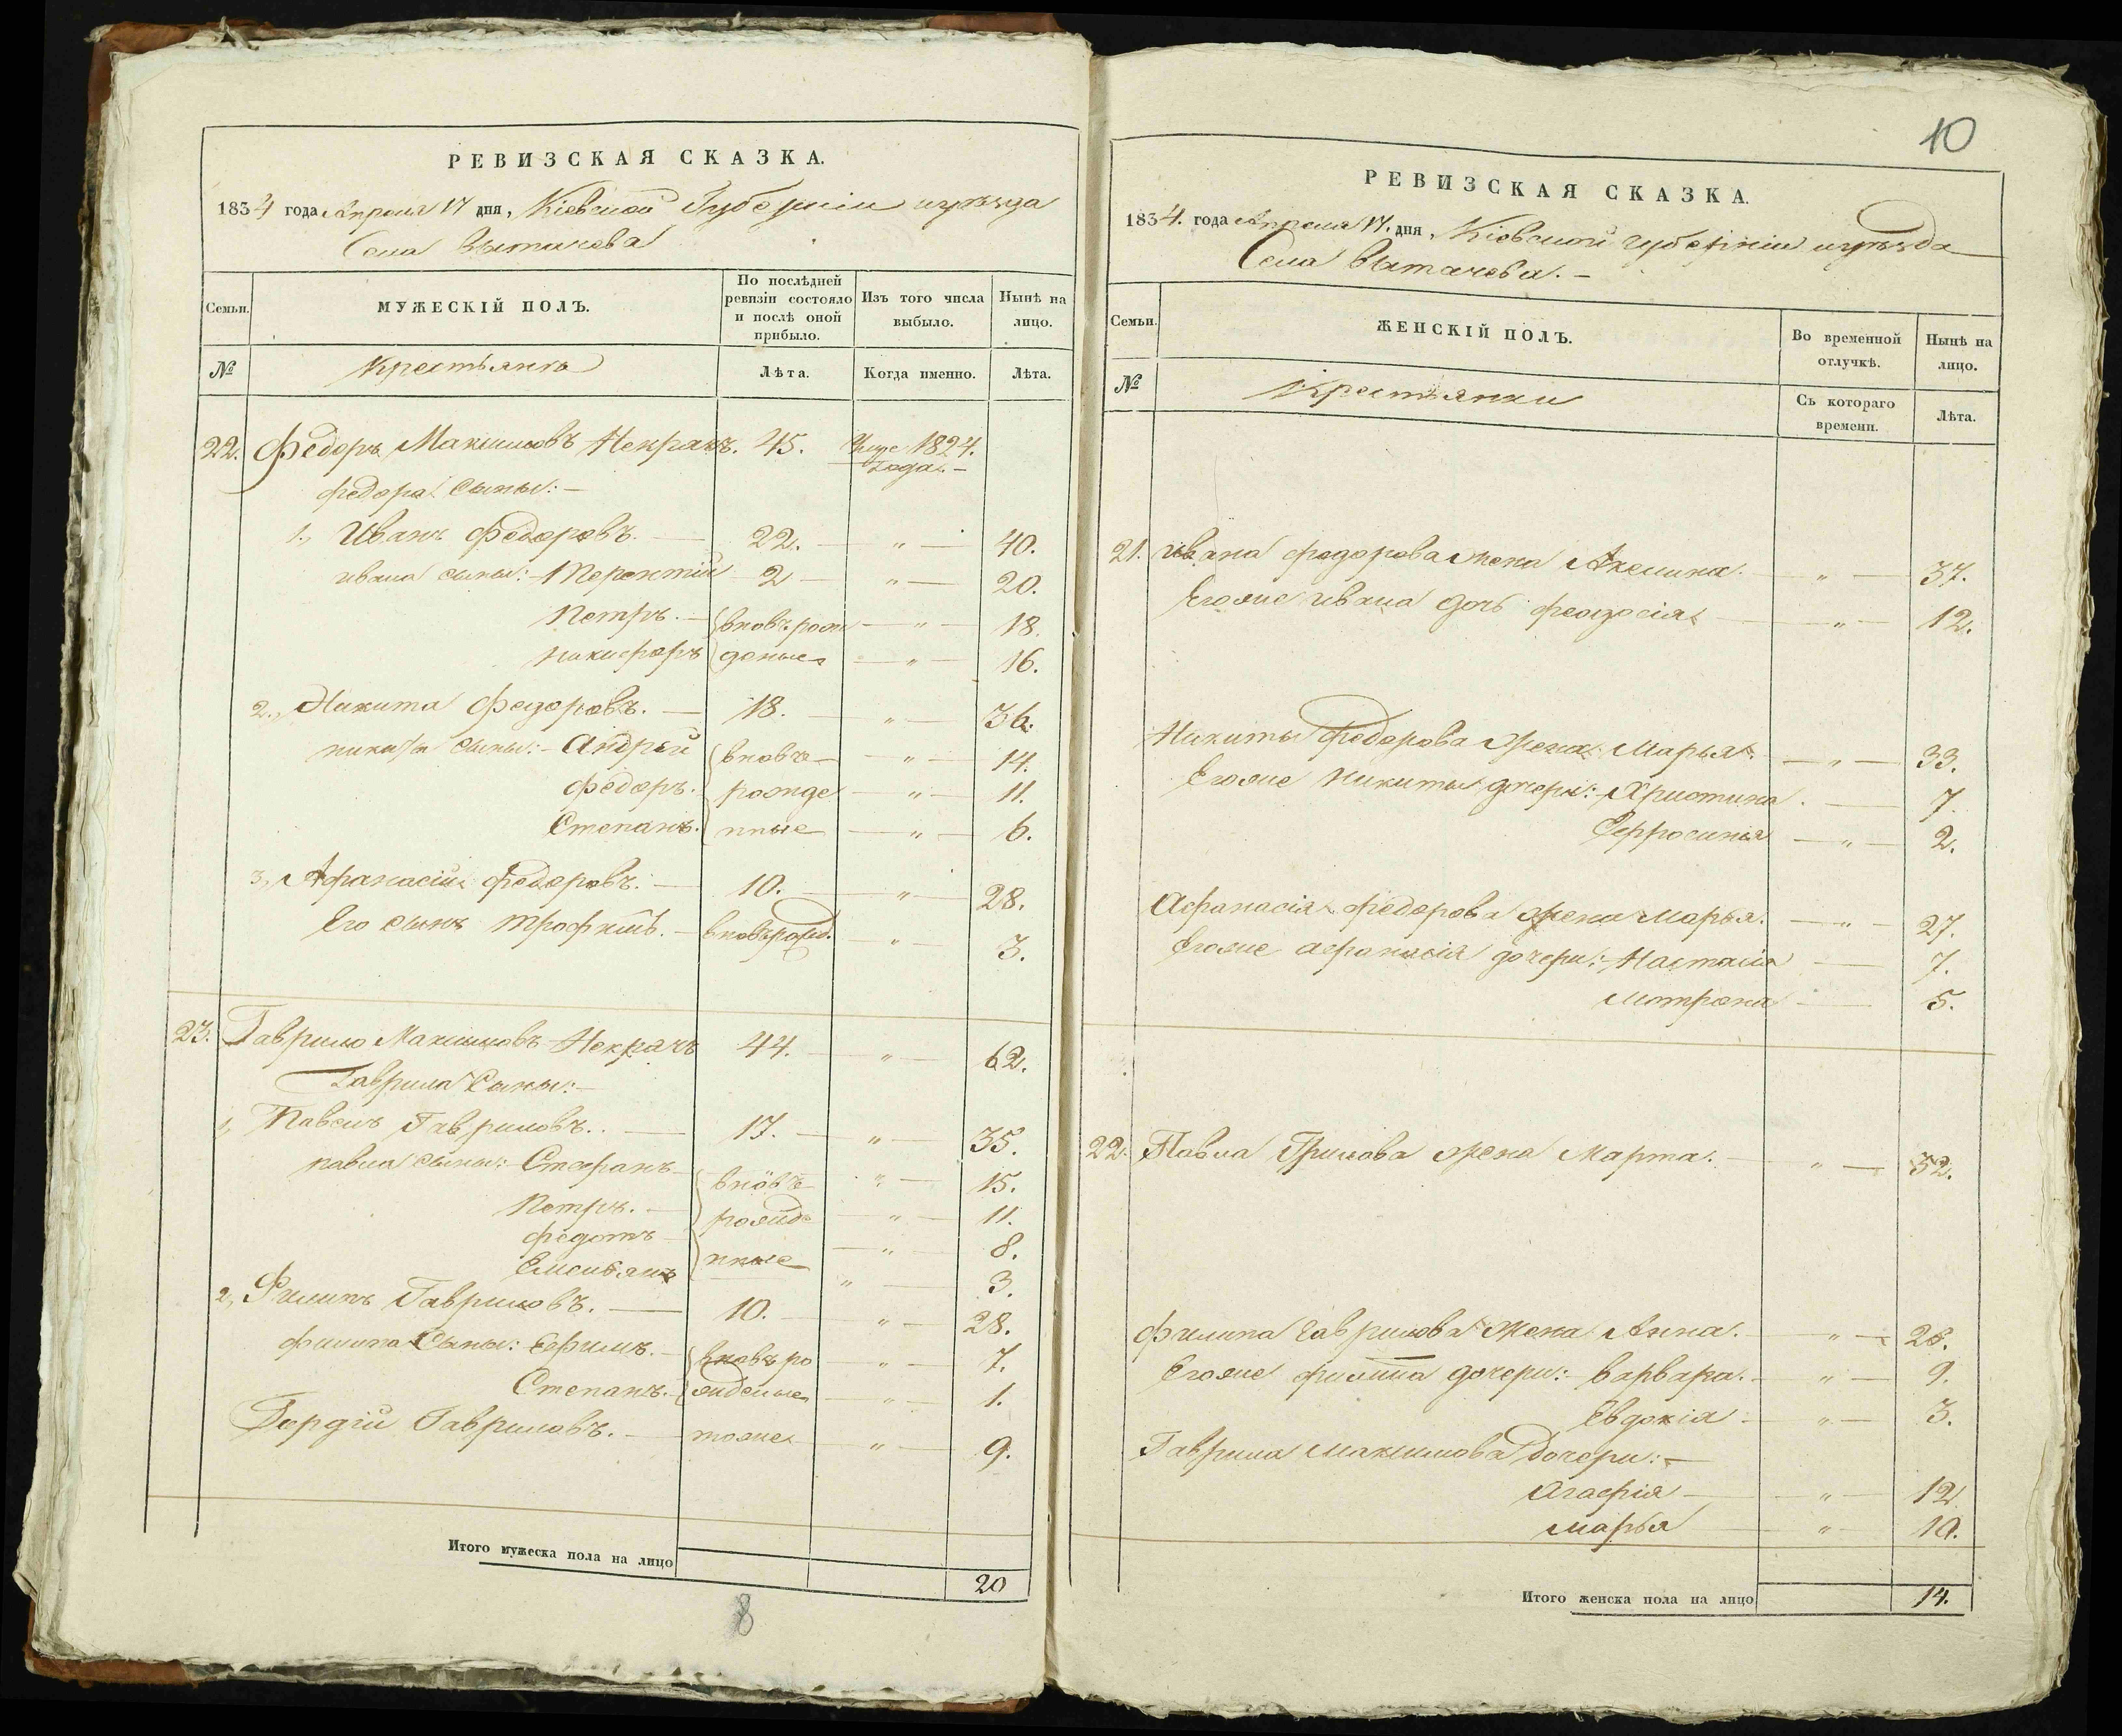 РЕВИЗСКАЯ СКАЗКА.
1834 года Апреля 17 дня, Кіевской Губерніи и уезда
Села Вытачева
Семьи.
МУЖЕСКІЙ ПОЛЪ.
По послѣдней ревизіи состояло и послѣ оной прибыло.
Изъ того числа выбыло.
Нынѣ на лицо.
№
Крестьянъ
Лѣта.
Когда именно.
Лѣта.
22. Федоръ Максимовъ Некрачъ. 45. 1824. года. —
Федора Сыны: —
1., Иванъ Федоровъ. — 22. — „ — 40.
Ивана сыны: — Терентій 2 — „ — 20.
Петръ. — вновь рож — „ — 18.
Никифоръ деные — „ — 16.
2., Никита Федоровъ. — 18. — „ — 36.
Никиты сыны: — Андрей вновь — „ — 14.
Федоръ. рожде — „ — 11.
Степанъ. нные — „ — 6.
3., Афанасій Федоровъ. — 10. — „ — 28.
Его сынъ Трофимъ. — вновь рожд. — „ — 3.
23. Гаврило Максимовъ Некрачъ 44. — „ — 62.
Гаврила Сыны: —
1, Павелъ Гавриловъ. — 17. — „ — 35.
Павла сыны: — Стефанъ вновь — „ — 15.
Петръ. — рожде — „ — 11.
Федотъ нные — „ — 8.
Емельянъ „ — 3.
2, Филипъ Гавриловъ. — 10. — „ — 28.
Филипа Сыны: Ефимъ. — вновь ро — „ — 7.
Степанъ. жденые — „ — 1.
Гордій Гавриловъ. — тоже — „ — 9.
Итого мужеска пола на лицо
20
8
10
РЕВИЗСКАЯ СКАЗКА.
1834. года Апреля 17. дня, Кіевской губерніи и уезда
Села Вытачева. —
Семьи.
ЖЕНСКІЙ ПОЛЪ.
Во временной отлучкѣ.
Нынѣ на лицо.
№
Крестьянки
Съ котораго времени.
Лѣта.
21. Ивана Федорова жена Акелина. — „ — 37.
Егоже Ивана дочь Феодосія — „ — 12.
Никиты Федорова жена Марья. — „ — 33.
Егоже Никиты дочери: — Христина. — 7.
Ефросинія — „ — 2.
Афанасія Федорова жена Марья. — „ — 27.
Егоже Афанасія дочери: — Настасія — 7.
Мотрона — 5.
22. Павла Грилова жена Марта. — „ — 32.
Филипа Гаврилова жена Анна. — „ — 28.
Егоже Филипа дочери: — Варвара. — „ — 9.
Евдокія — „ — 3.
Гаврила Максимова дочери: —
Агафія — „ — 12.
Марья — „ — 10.
Итого женска пола на лицо
14.